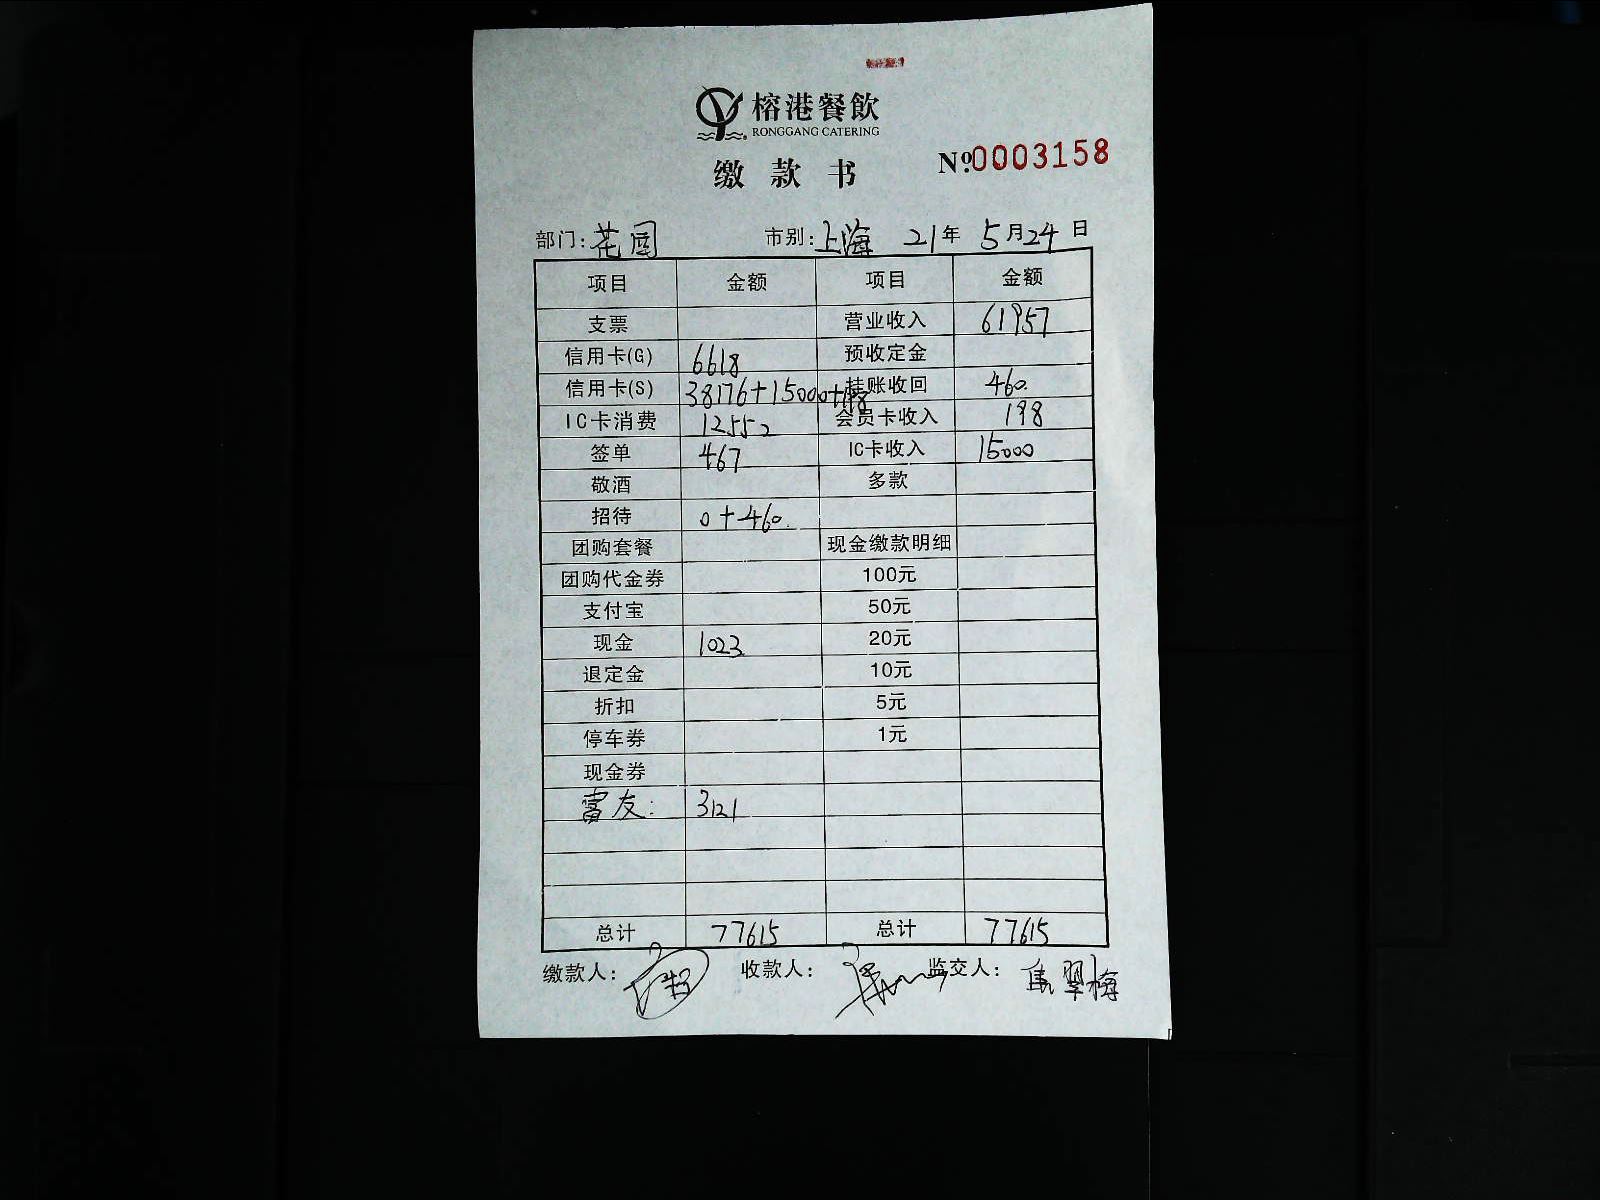 榕港餐飲
RONGGANG CATERING
缴款书
№0003158
部门:花园 市别:上海 21年 5月24日
项目 金额 项目 金额
支票 营业收入 61957
信用卡(G) 6618 预收定金
信用卡(S) 38176+15000+198 挂账收回 460.
IC卡消费 12552 会员卡收入 198
签单 467 IC卡收入 15000
敬酒 多款
招待 0+460.
团购套餐 现金缴款明细
团购代金券 100元
支付宝 50元
现金 1023 20元
退定金 10元
折扣 5元
停车券 1元
现金券
富友: 3121
总计 77615 总计 77615
缴款人: 收款人: 监交人: 翠梅